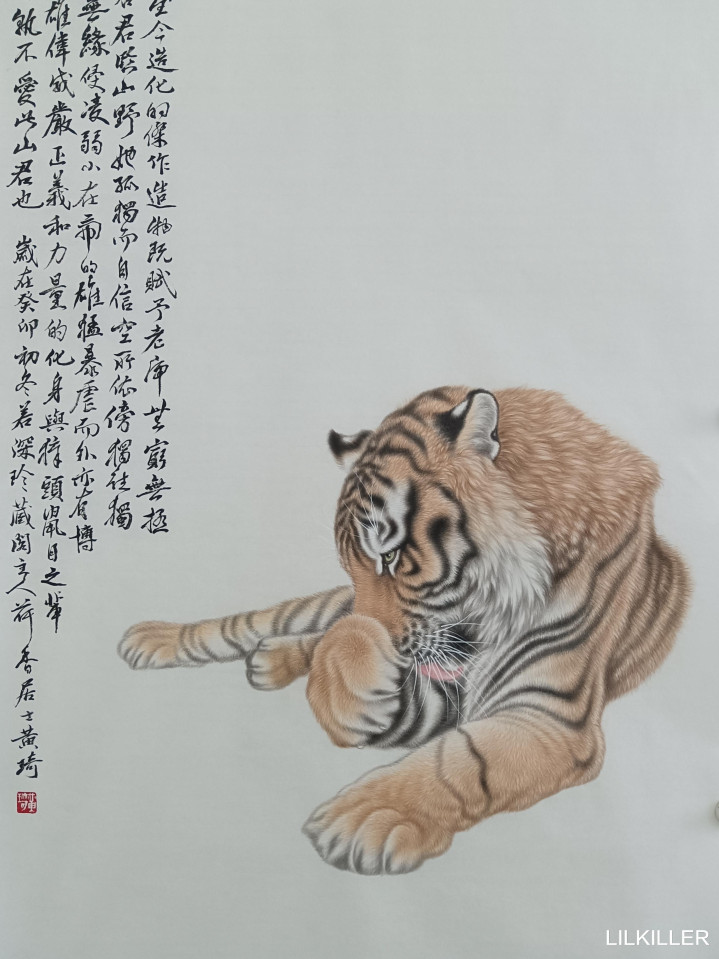 至今造化的傑作造物既賦予老虎無窮無極
君堅山野她孤獨而自信空所依傍獨往獨
無緣侵凌弱小在霸的雄猛暴虐而外亦有博
雄偉威嚴正義和力量的化身與獐頭鼠目之輩
孰不愛此山君也 歲在癸卯初冬若深珍藏閣主人荷香居士黃琦
LILKILLER